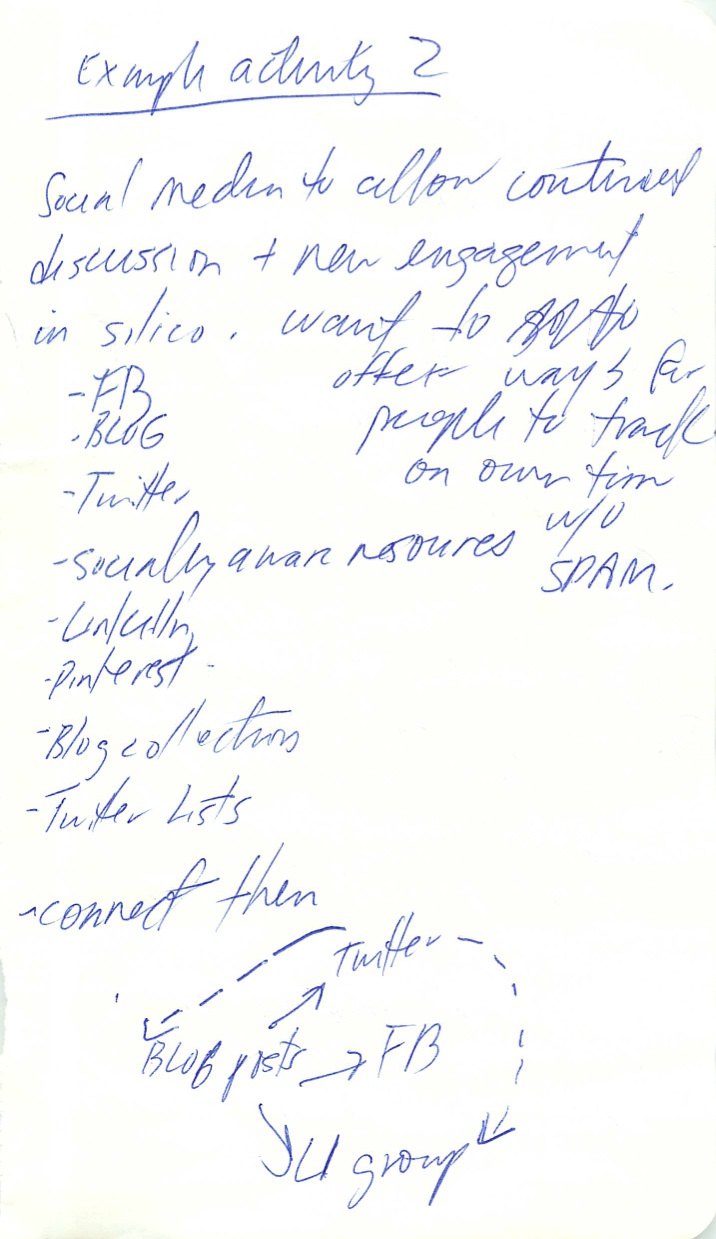 Example activity 2
Social media to allow continued
discussion + new engagement
in silico. want to
offer ways for
people to track
on own time
w/o
SPAM.
-FB
-BLOG
-Twitter
-socially aware resources
-LinkedIn
-Pinterest
-Blog collections
-Twitter Lists
-connect them
Twitter
Blog posts → FB
LI group